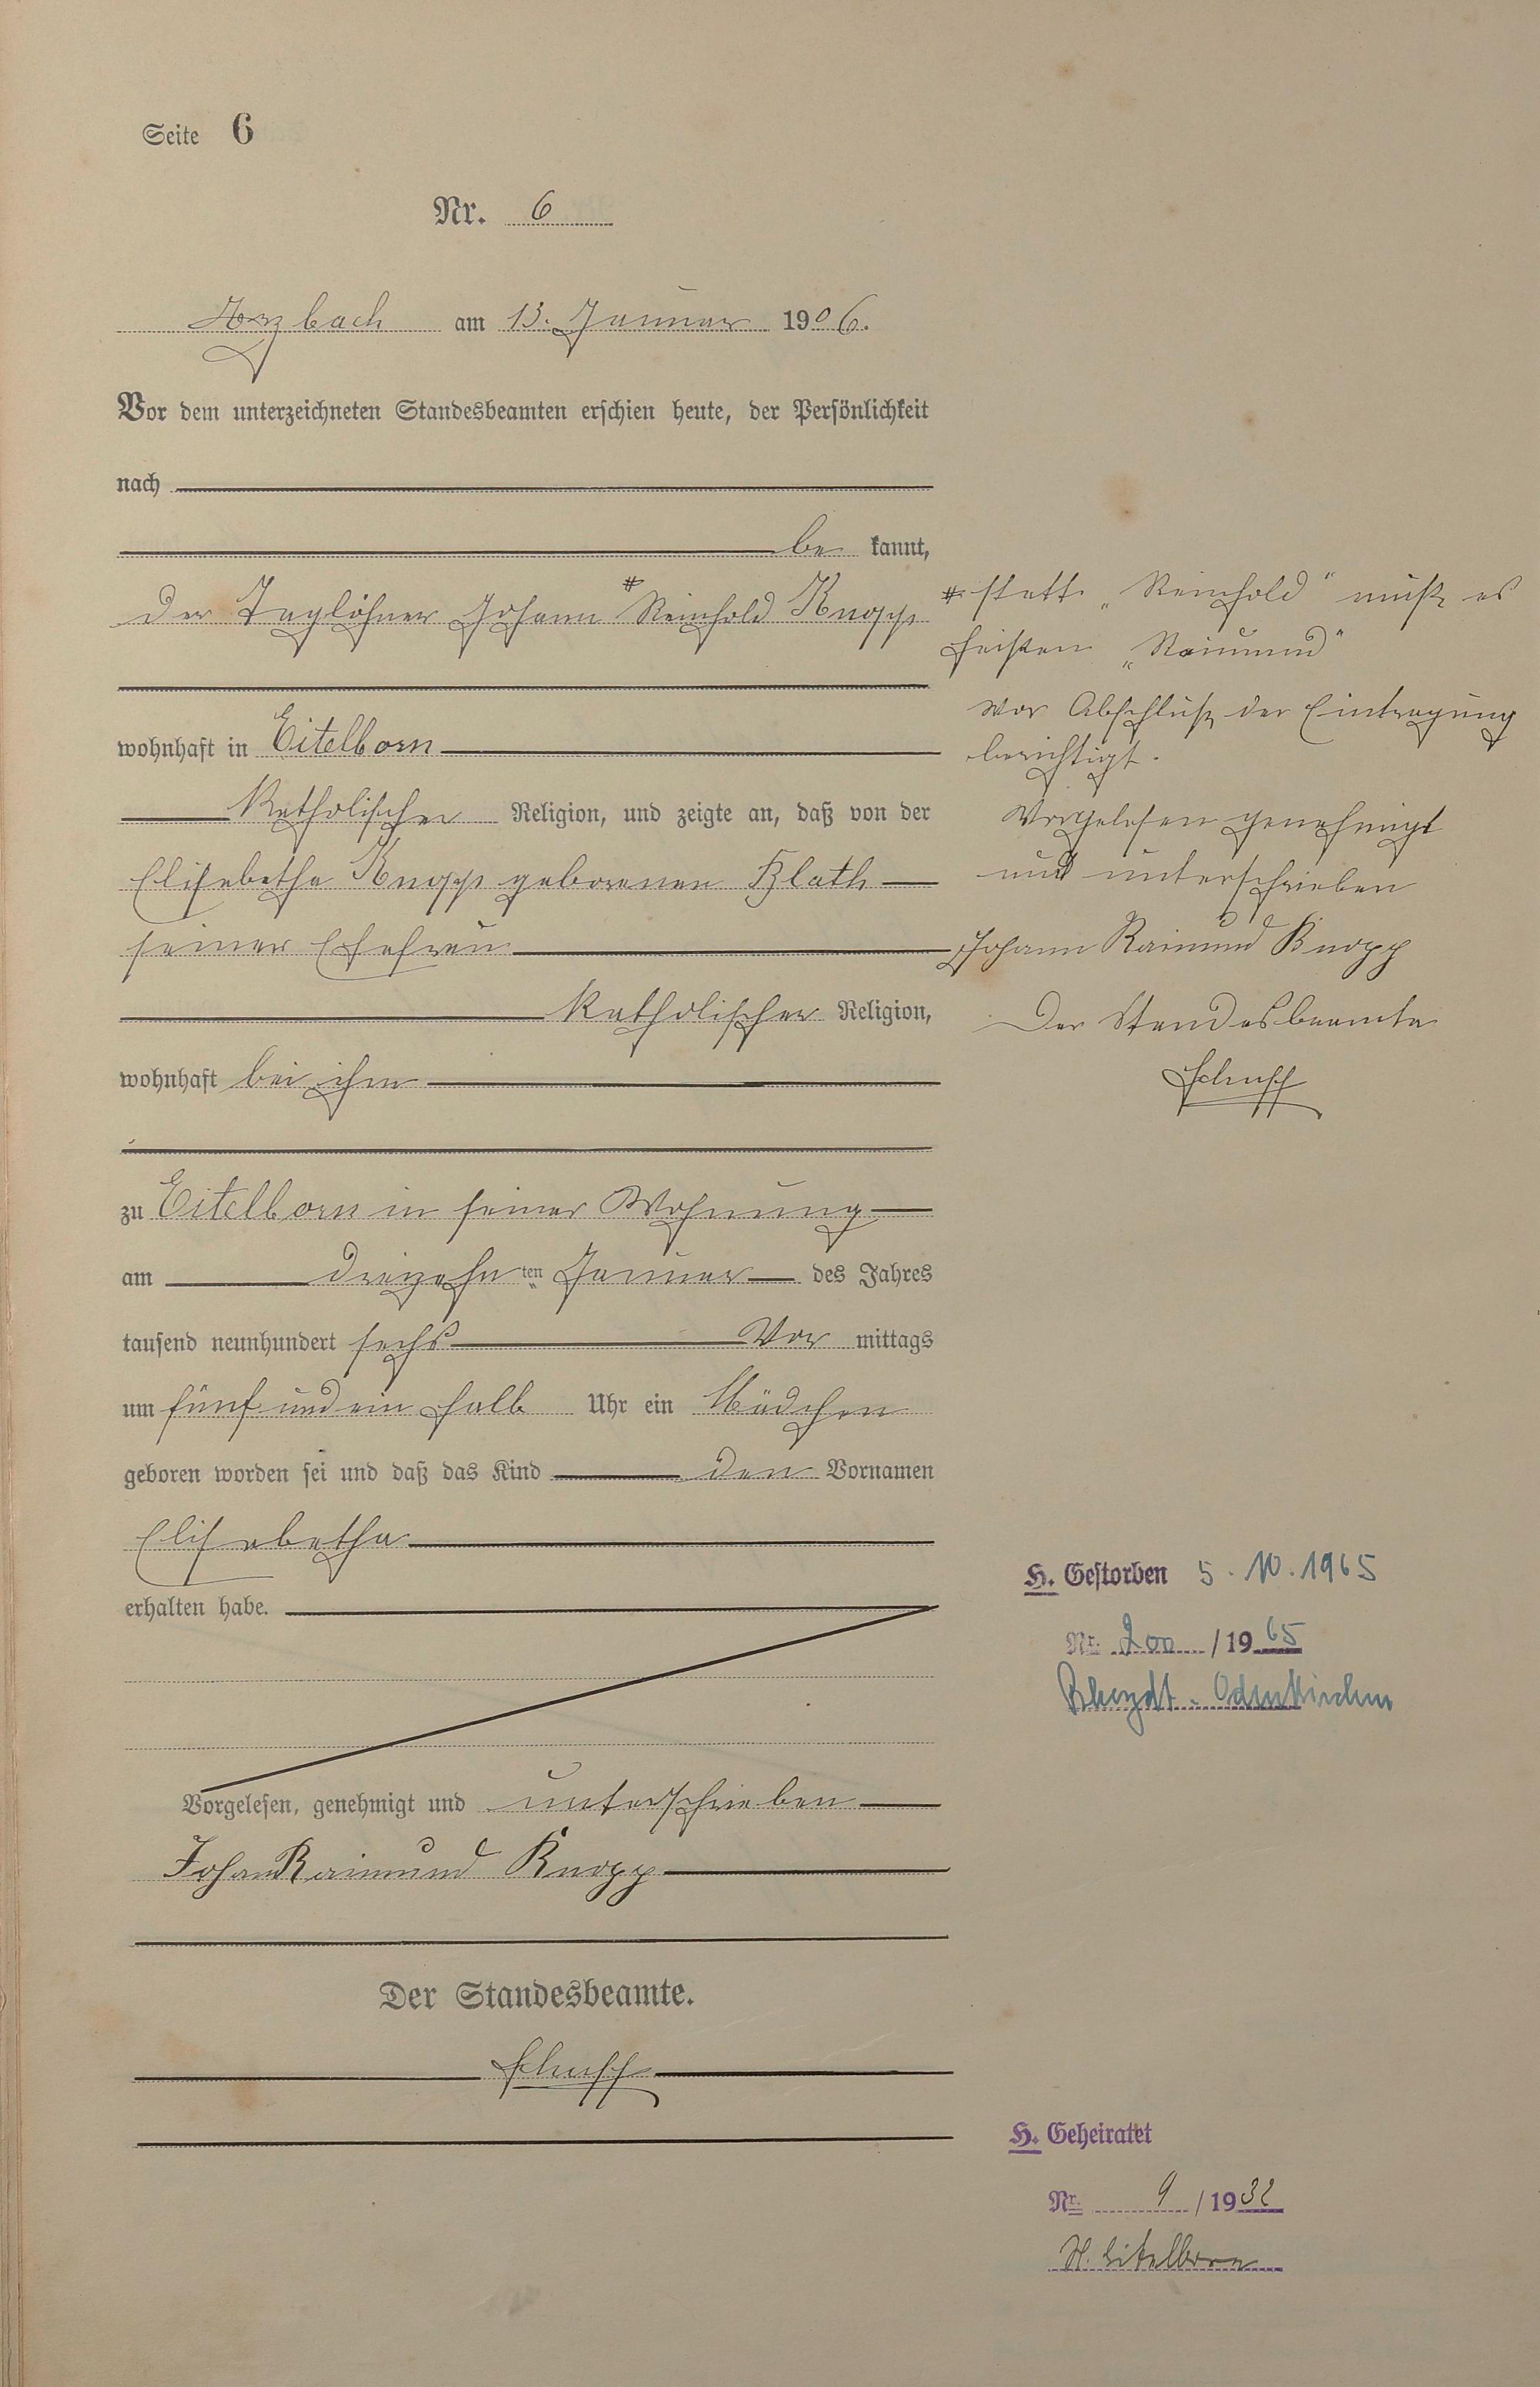 Seite 6
Nr. 6
Arzbach am 13. Januar 1906.
Vor dem unterzeichneten Standesbeamten erschien heute, der Persönlichkeit
nach
be kannt,
der Taglöhner Johann # Reinhold Knopp
wohnhaft in Eitelborn
katholischer Religion, und zeigte an, daß von der
Elisabetha Knopp geborenen Blath
seiner Ehefrau
katholischer Religion,
wohnhaft bei ihm
zu Eitelborn in seiner Wohnung
am dreizehnten Januar des Jahres
tausend neunhundert sechs Vor mittags
um fünf und ein halb Uhr ein Mädchen
geboren worden sei und daß das Kind den Vornamen
Elisabetha
erhalten habe.
Vorgelesen, genehmigt und unterschrieben
Johan Raimund Knopp
Der Standesbeamte.
# statt „Reinhold" muß es
heißen „Raimund"
Vor Abschluß der Eintragung
berichtigt.
Vorgelesen genehmigt
und unterschrieben
Johann Raimund Knopp
Der Standesbeamte
H. Gestorben 5.10.1965
Nr. 200 /1965
Rheydt-Odenkirchen
H. Geheiratet
Nr. 9 /1932
St. Eitelborn